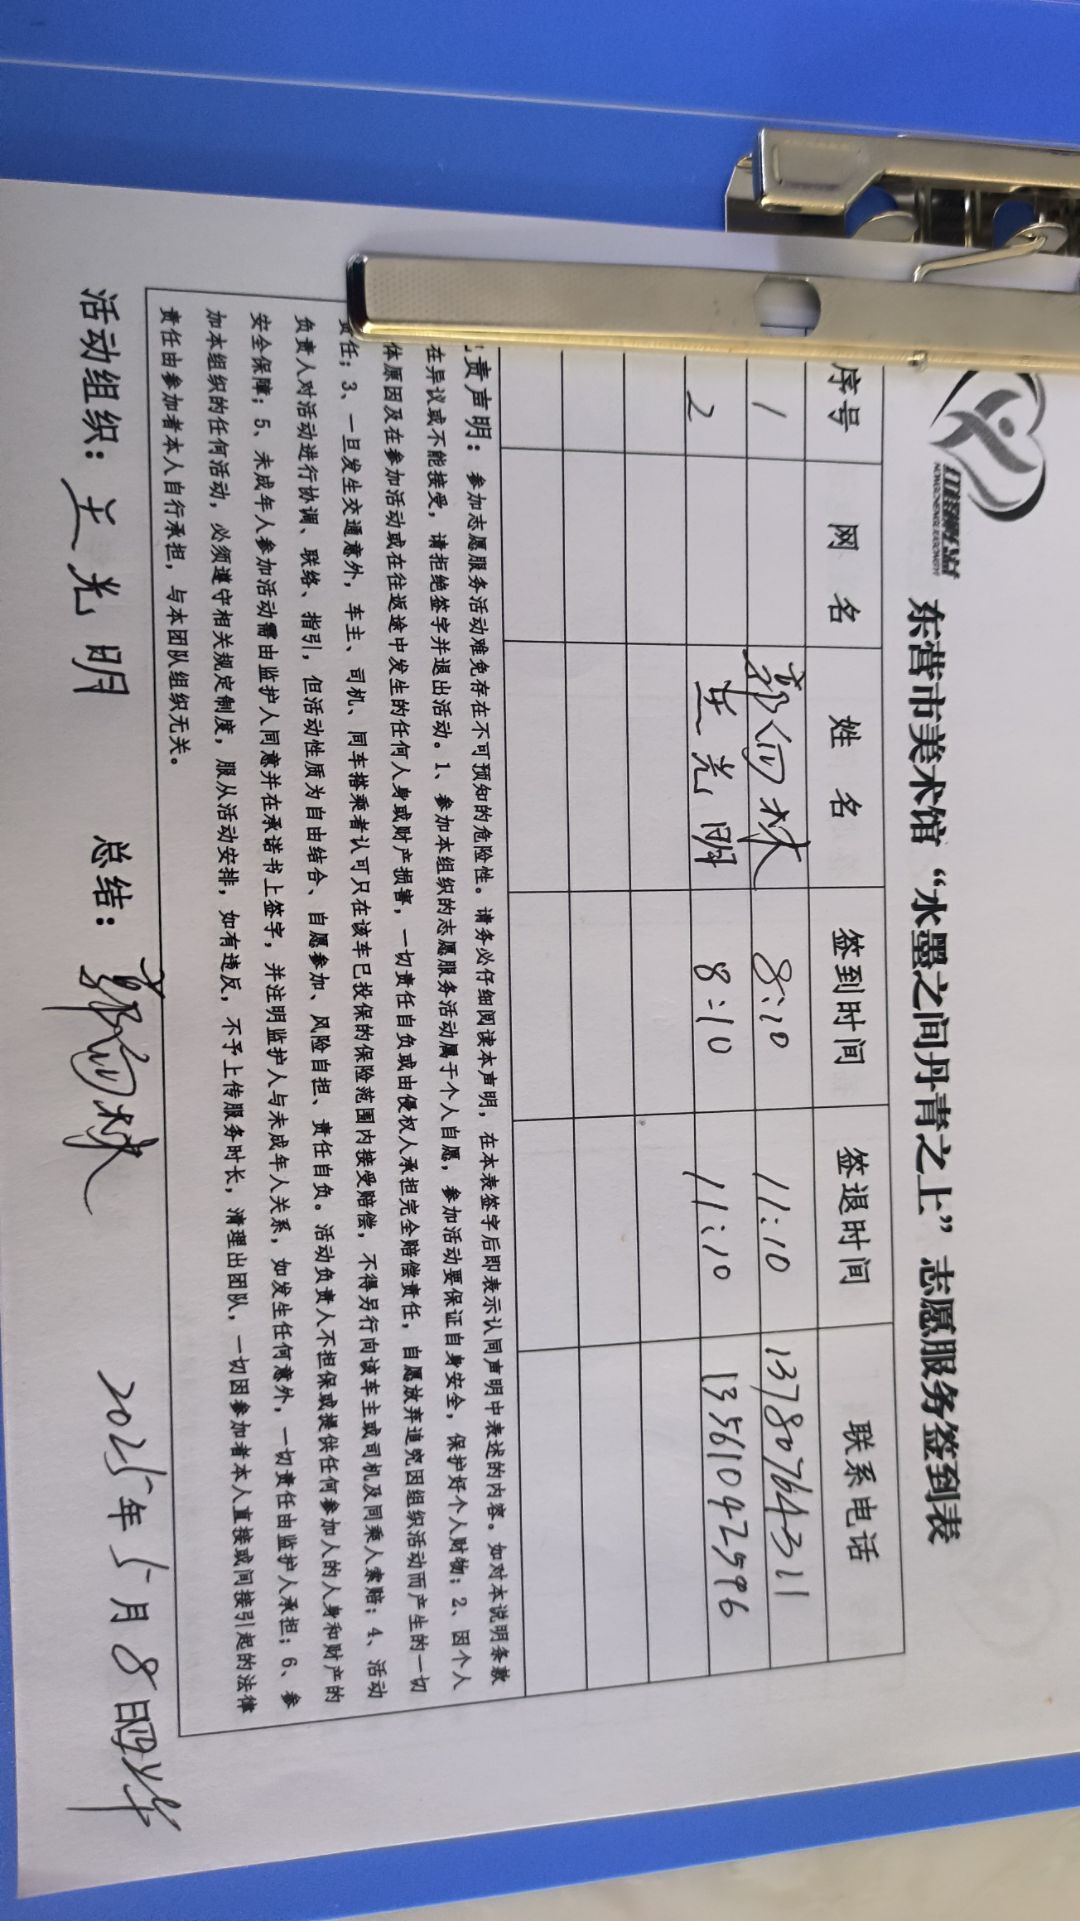 东营市美术馆“水墨之间丹青之上”志愿服务签到表
序号 网名 姓名 签到时间 签退时间 联系电话
1 8:10 11:10 13780764311
2 王光明 8:10 11:10 13561042596
责声明：参加志愿服务活动难免存在不可预知的危险性。请务必仔细阅读本声明，在本表签字后即表示认同声明中表述的内容。如对本说明条款
在异议或不能接受，请拒绝签字并退出活动。1、参加本组织的志愿服务活动属于个人自愿，参加活动要保证自身安全，保护好个人财物；2、因个人
体原因及在参加活动或在往返途中发生的任何人身或财产损害，一切责任自负或由侵权人承担完全赔偿责任，自愿放弃追究因组织活动而产生的一切
责任；3、一旦发生交通意外，车主、司机、同车搭乘者认可只在该车已投保的保险范围内接受赔偿，不得另行向该车主或司机及同乘人索赔；4、活动
负责人对活动进行协调、联络、指引，但活动性质为自由结合、自愿参加、风险自担、责任自负。活动负责人不担保或提供任何参加人的人身和财产的
安全保障；5、未成年人参加活动需由监护人同意并在承诺书上签字，并注明监护人与未成年人关系，如发生任何意外，一切责任由监护人承担；6、参
加本组织的任何活动，必须遵守相关规定制度，服从活动安排，如有违反，不予上传服务时长，清理出团队，一切因参加者本人直接或间接引起的法律
责任由参加者本人自行承担，与本团队组织无关。
活动组织：王光明 总结： 2025年5月8日